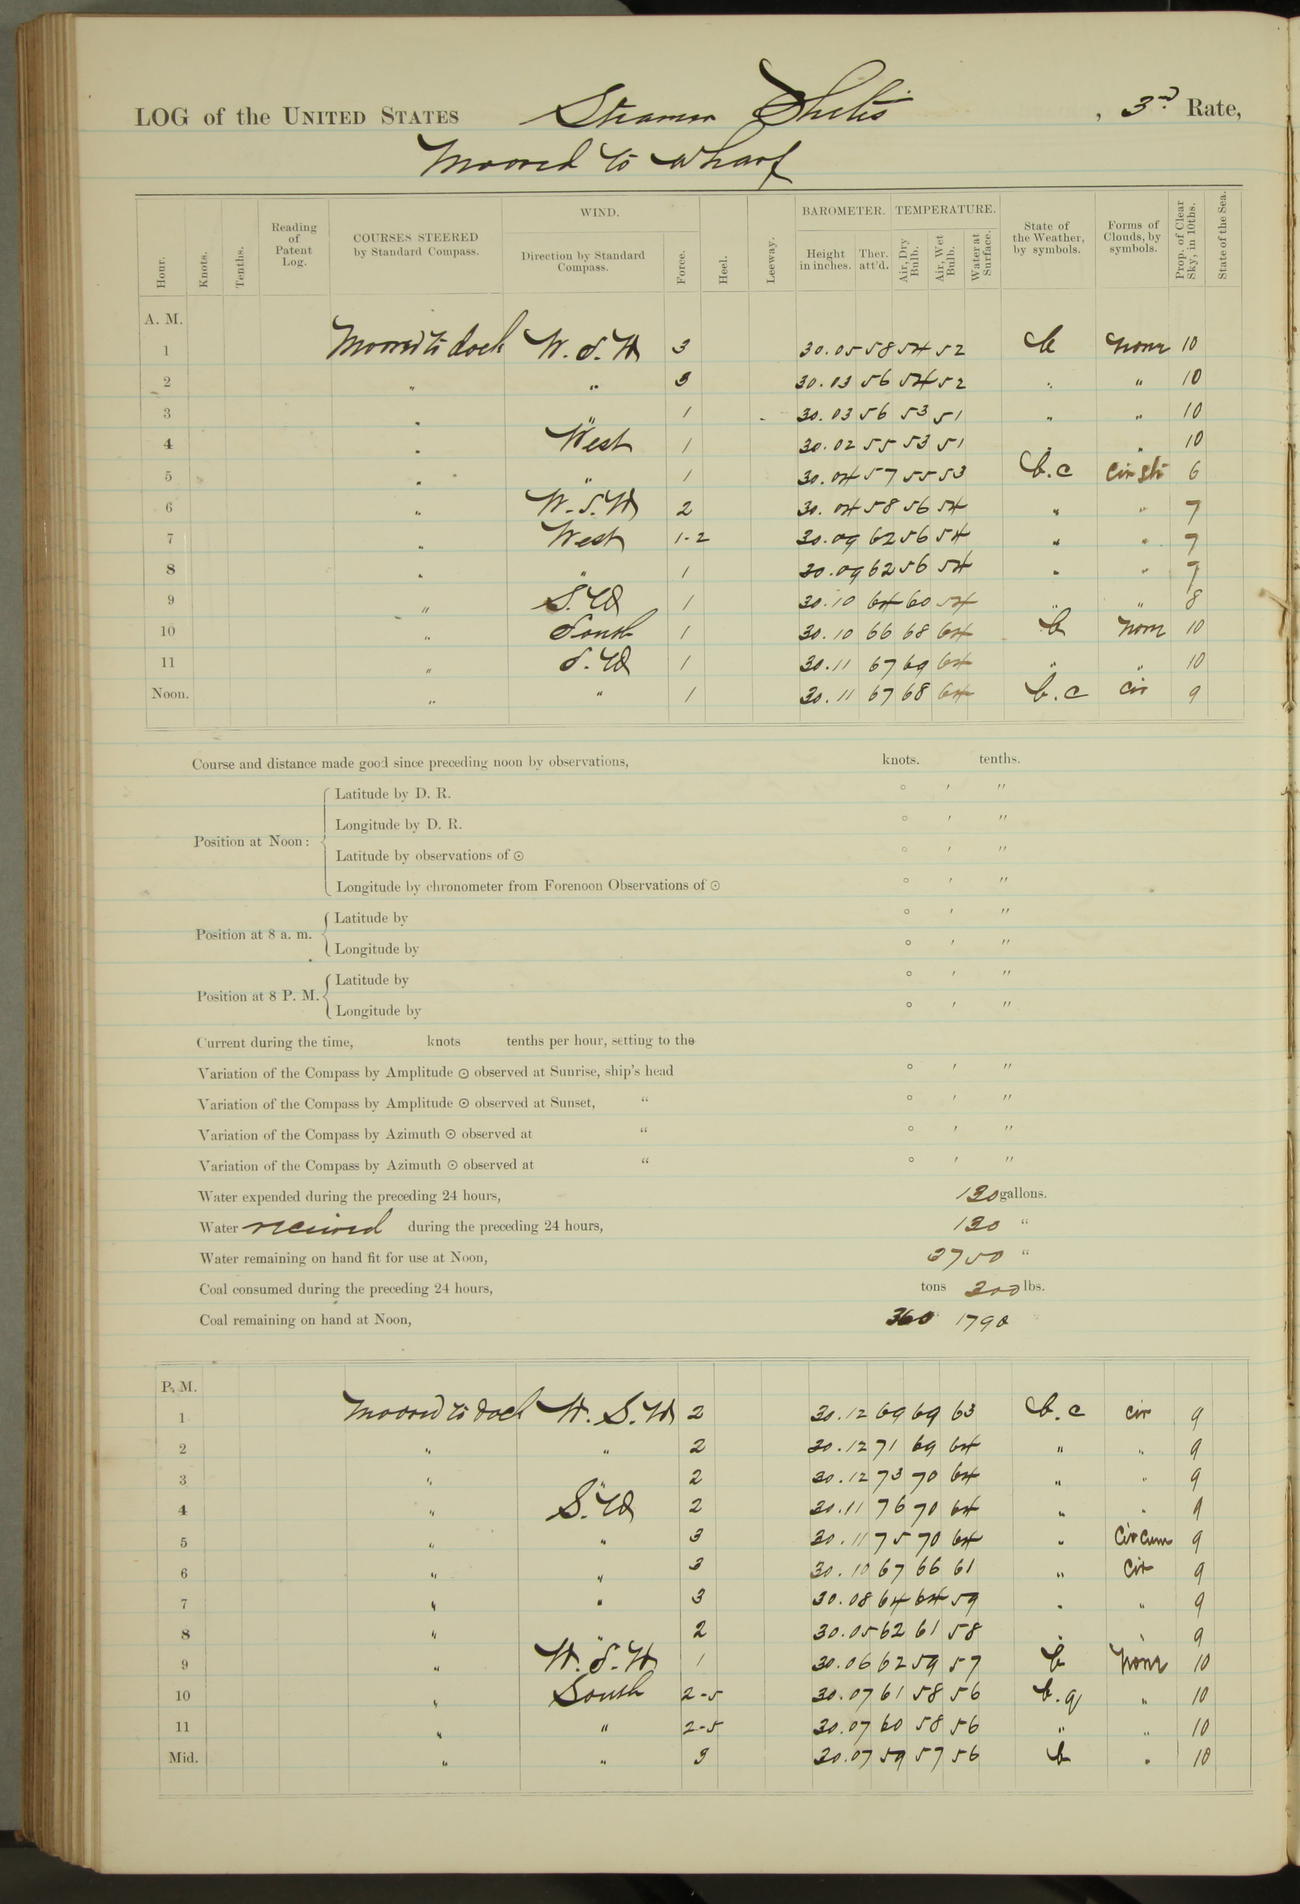 LOG of the UNITED STATES Steamer Thetis, 3rd Rate,
Moored to wharf
Hour. Knots. Tenths. Reading of Patent Log. COURSES STEERED by Standard Compass. WIND. Direction by Standard Compass. Force. Heel. Leeway. BAROMETER. Height in inches. Ther. att'd. TEMPERATURE. Air, Dry Bulb. Air, Wet Bulb. Water at Surface. State of the Weather, by symbols. Forms of Clouds, by symbols. Prop. of Clear Sky, in 10ths. State of the Sea.
A. M.
1 Moored to dock W.S.W 3 30.05 58 54 52 b none 10
2 " " 3 30.03 56 54 52 " " 10
3 " " 1 30.03 56 53 51 " " 10
4 " West 1 30.02 55 53 51 " " 10
5 " " 1 30.04 57 55 53 b.c cir str 6
6 " W.S.W 2 30.04 58 56 54 " " 7
7 " West 1-2 30.09 62 56 54 " " 7
8 " " 1 30.09 62 56 54 " " 7
9 " S.W 1 30.10 64 60 54 " " 8
10 " South 1 30.10 66 68 64 b none 10
11 " S.W 1 30.11 67 69 64 " " 10
Noon. " " 1 30.11 67 68 64 b.c cir 9
Course and distance made good since preceding noon by observations, knots. tenths.
Position at Noon:
Latitude by D. R. ° ′ ″
Longitude by D. R. ° ′ ″
Latitude by observations of ☉ ° ′ ″
Longitude by chronometer from Forenoon Observations of ☉ ° ′ ″
Position at 8 a. m.
Latitude by ° ′ ″
Longitude by ° ′ ″
Position at 8 P. M.
Latitude by ° ′ ″
Longitude by ° ′ ″
Current during the time, knots tenths per hour, setting to the
Variation of the Compass by Amplitude ☉ observed at Sunrise, ship's head ° ′ ″
Variation of the Compass by Amplitude ☉ observed at Sunset, " ° ′ ″
Variation of the Compass by Azimuth ☉ observed at " ° ′ ″
Variation of the Compass by Azimuth ☉ observed at " ° ′ ″
Water expended during the preceding 24 hours, 130 gallons.
Water received during the preceding 24 hours, 130 "
Water remaining on hand fit for use at Noon, 3750 "
Coal consumed during the preceding 24 hours, tons 300 lbs.
Coal remaining on hand at Noon, 360 1790
P. M.
1 Moored to dock W.S.W 2 30.12 69 69 63 b.c cir 9
2 " " 2 30.12 71 69 64 " " 9
3 " " 2 30.12 73 70 64 " " 9
4 " S.W 2 30.11 76 70 64 " " 9
5 " " 3 30.11 75 70 64 " Cir cum 9
6 " " 3 30.10 67 66 61 " Cir 9
7 " " 3 30.08 64 64 59 " " 9
8 " " 2 30.05 62 61 58 " " 9
9 " W.S.W 1 30.06 62 59 57 b None 10
10 " South 2-5 30.07 61 58 56 b.q " 10
11 " " 2-5 30.07 60 58 56 " " 10
Mid. " " 3 30.07 59 57 56 b " 10